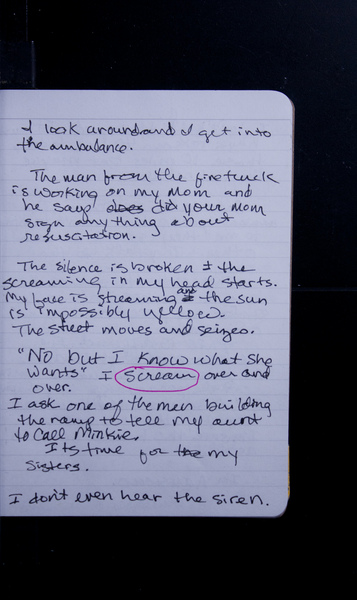 I look around and I get into
the ambulance.
The man from the firetruck
is working on my mom and
he says does did your mom
sign anything about
resuscitation.
The silence is broken & the
screaming in my head starts.
My face is streaming and the sun
is impossibly yellow.
The street moves and seizes.
"No but I know what she
wants" I scream over and
over.
I ask one of the men building
the ramp to tell my aunt
to call Minkie.
Its time for the my
sisters.
I don't even hear the siren.